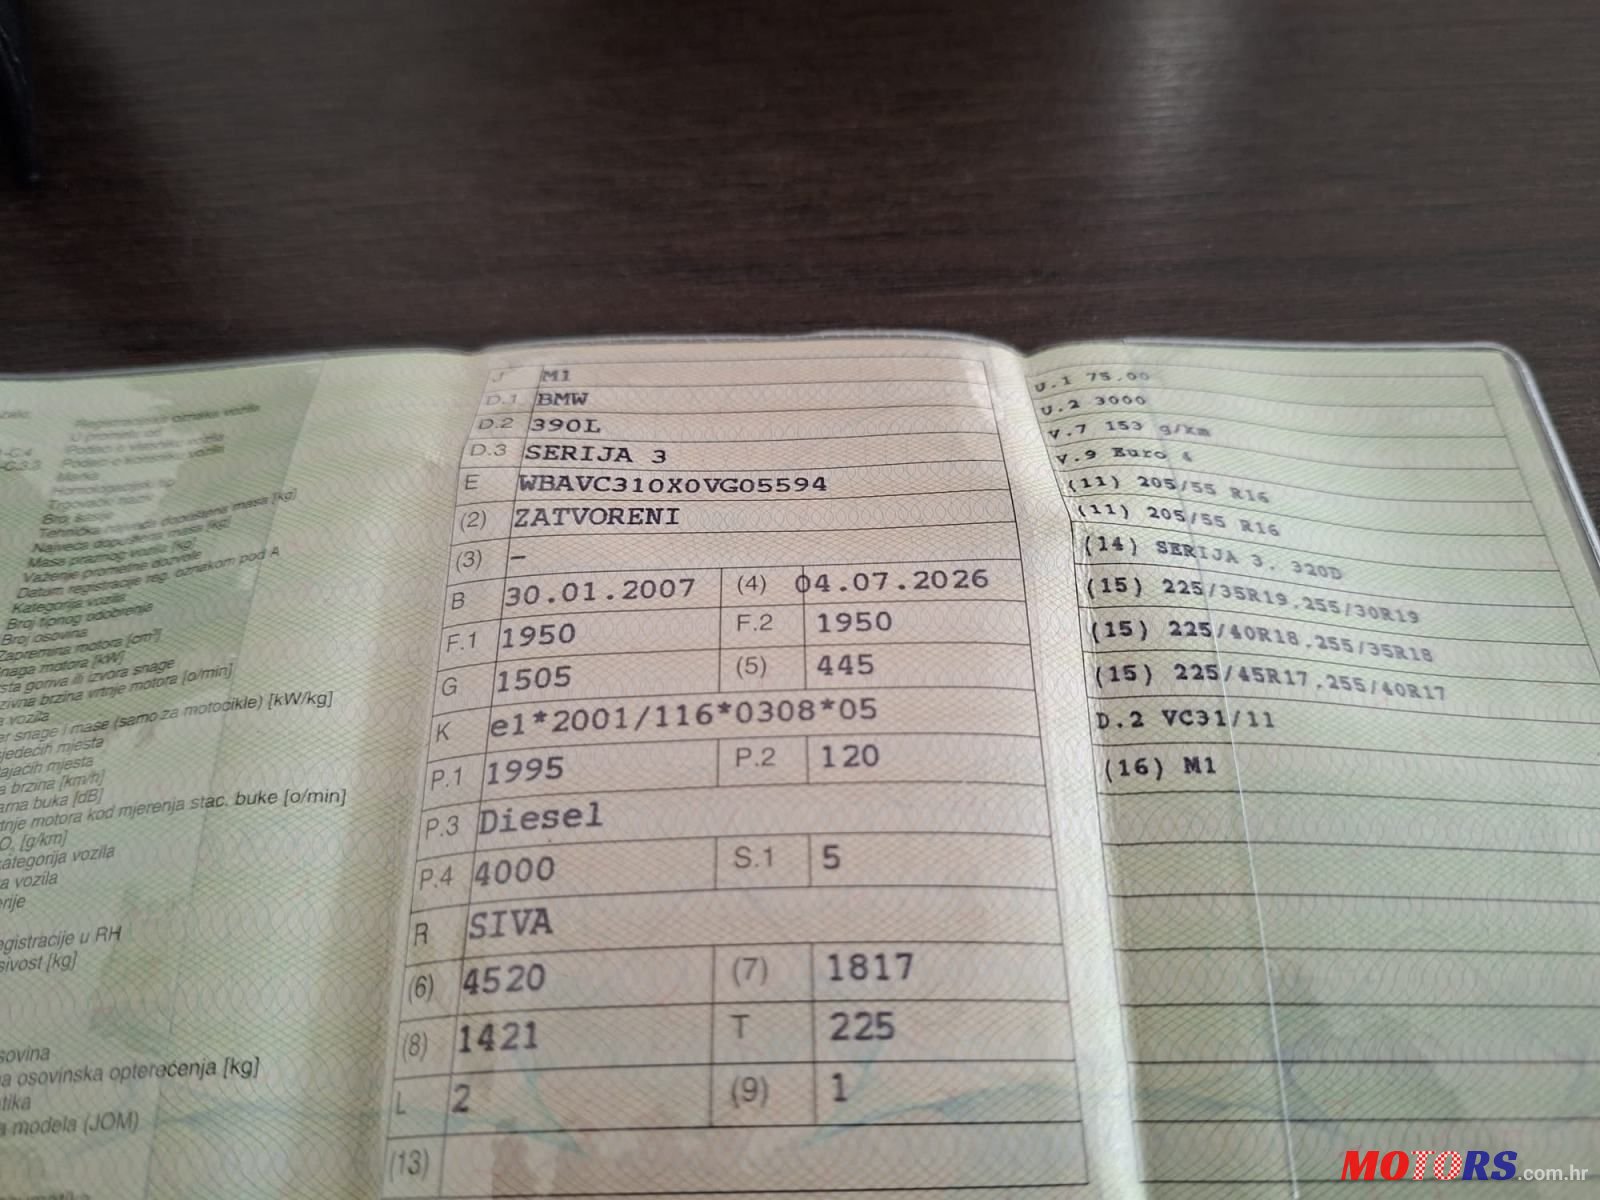 Registracijska oznaka vozila
C.4 Podaci o vlasniku vozila
Marka
Homologacijski tip
Trgovački naziv
Broj šasije
Tehnička najveća dopuštena masa [kg]
Najveća dopuštena masa [kg]
Masa praznog vozila [kg]
Važenje prometne dozvole
Datum registracije reg. oznakom pod A
Kategorija vozila
Broj tipnog odobrenja
Broj osovina
Zapremina motora [cm³]
snaga motora [kW]
sta goriva ili izvora snage
zivna brzina vrtnje motora [o/min]
a vozila
er snage i mase (samo za motocikle) [kW/kg]
sjedećih mjesta
ajaćih mjesta
a brzina [km/h]
arna buka [dB]
rtnje motora kod mjerenja stac. buke [o/min]
O₂ [g/km]
kategorija vozila
a vozila
enje
egistracije u RH
sivost [kg]
sovina
a osovinska opterećenja [kg]
tika
a modela (JOM)
J M1
D.1 BMW
D.2 390L
D.3 SERIJA 3
E WBAVC310X0VG05594
(2) ZATVORENI
(3) –
B 30.01.2007 (4) 04.07.2026
F.1 1950 F.2 1950
G 1505 (5) 445
K e1*2001/116*0308*05
P.1 1995 P.2 120
P.3 Diesel
P.4 4000 S.1 5
R SIVA
(6) 4520 (7) 1817
(8) 1421 T 225
L 2 (9) 1
(13)
U.1 75.00
U.2 3000
V.7 153 g/km
V.9 Euro 4
(11) 205/55 R16
(11) 205/55 R16
(14) SERIJA 3. 320D
(15) 225/35R19,255/30R19
(15) 225/40R18,255/35R18
(15) 225/45R17,255/40R17
D.2 VC31/11
(16) M1
MOTORS.com.hr